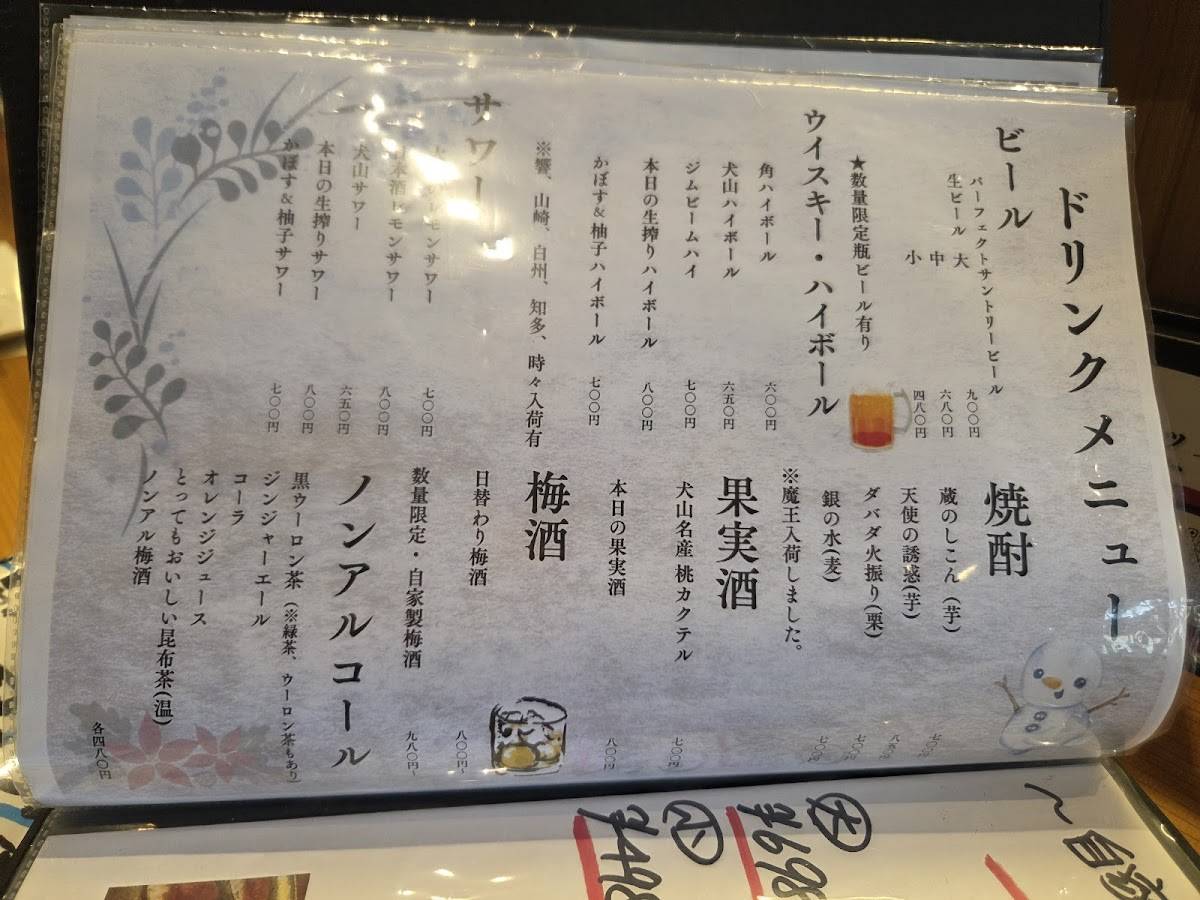 ドリンクメニュー
ビール
パーフェクトサントリービール
生ビール 大 九〇〇円
中 六八〇円
小 四八〇円
★数量限定瓶ビール有り
ウイスキー・ハイボール
角ハイボール 六〇〇円
犬山ハイボール 六五〇円
ジムビームハイ 七〇〇円
本日の生搾りハイボール 八〇〇円
かぼす&柚子ハイボール 七〇〇円
※響、山崎、白州、知多、時々入荷有
サワー
モンサワー 七〇〇円
本酒レモンサワー 八〇〇円
犬山サワー 六五〇円
本日の生搾りサワー 八〇〇円
かぼす&柚子サワー 七〇〇円
焼酎
蔵のしこん(芋) 七〇〇円
天使の誘惑(芋) 八五〇円
ダバダ火振り(栗) 七〇〇円
銀の水(麦) 七〇〇円
※魔王入荷しました。
果実酒
犬山名産 桃カクテル 七〇〇円
本日の果実酒 八〇〇円
梅酒
日替わり梅酒 八〇〇円~
数量限定・自家製梅酒 九八〇円~
ノンアルコール
黒ウーロン茶(※緑茶、ウーロン茶もあり)
ジンジャーエール
コーラ
オレンジジュース
とってもおいしい昆布茶(温)
ノンアル梅酒
各四八〇円
大
¥698
小
¥498